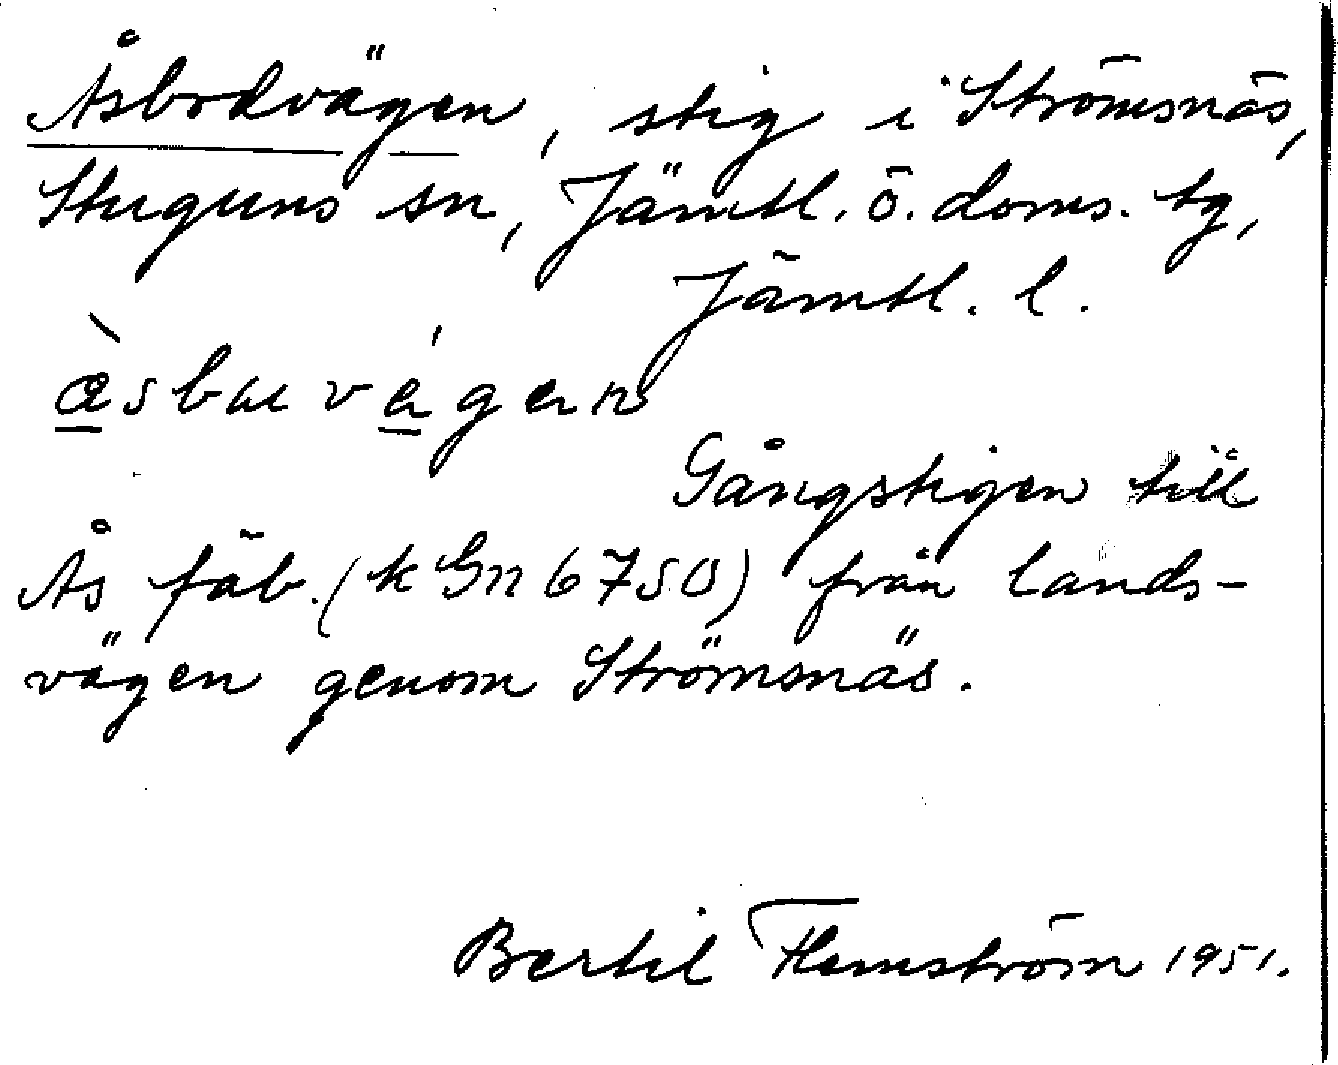 Åsbodvägen, stig i Strömsnäs,
Stuguns sn, Jämtl. ö. doms. tg,
Jämtl. l.
Gångstigen till
Ås fäb. (k Gn 6750) från lands-
vägen genom Strömsnäs.
Bertil Flemström 1951.